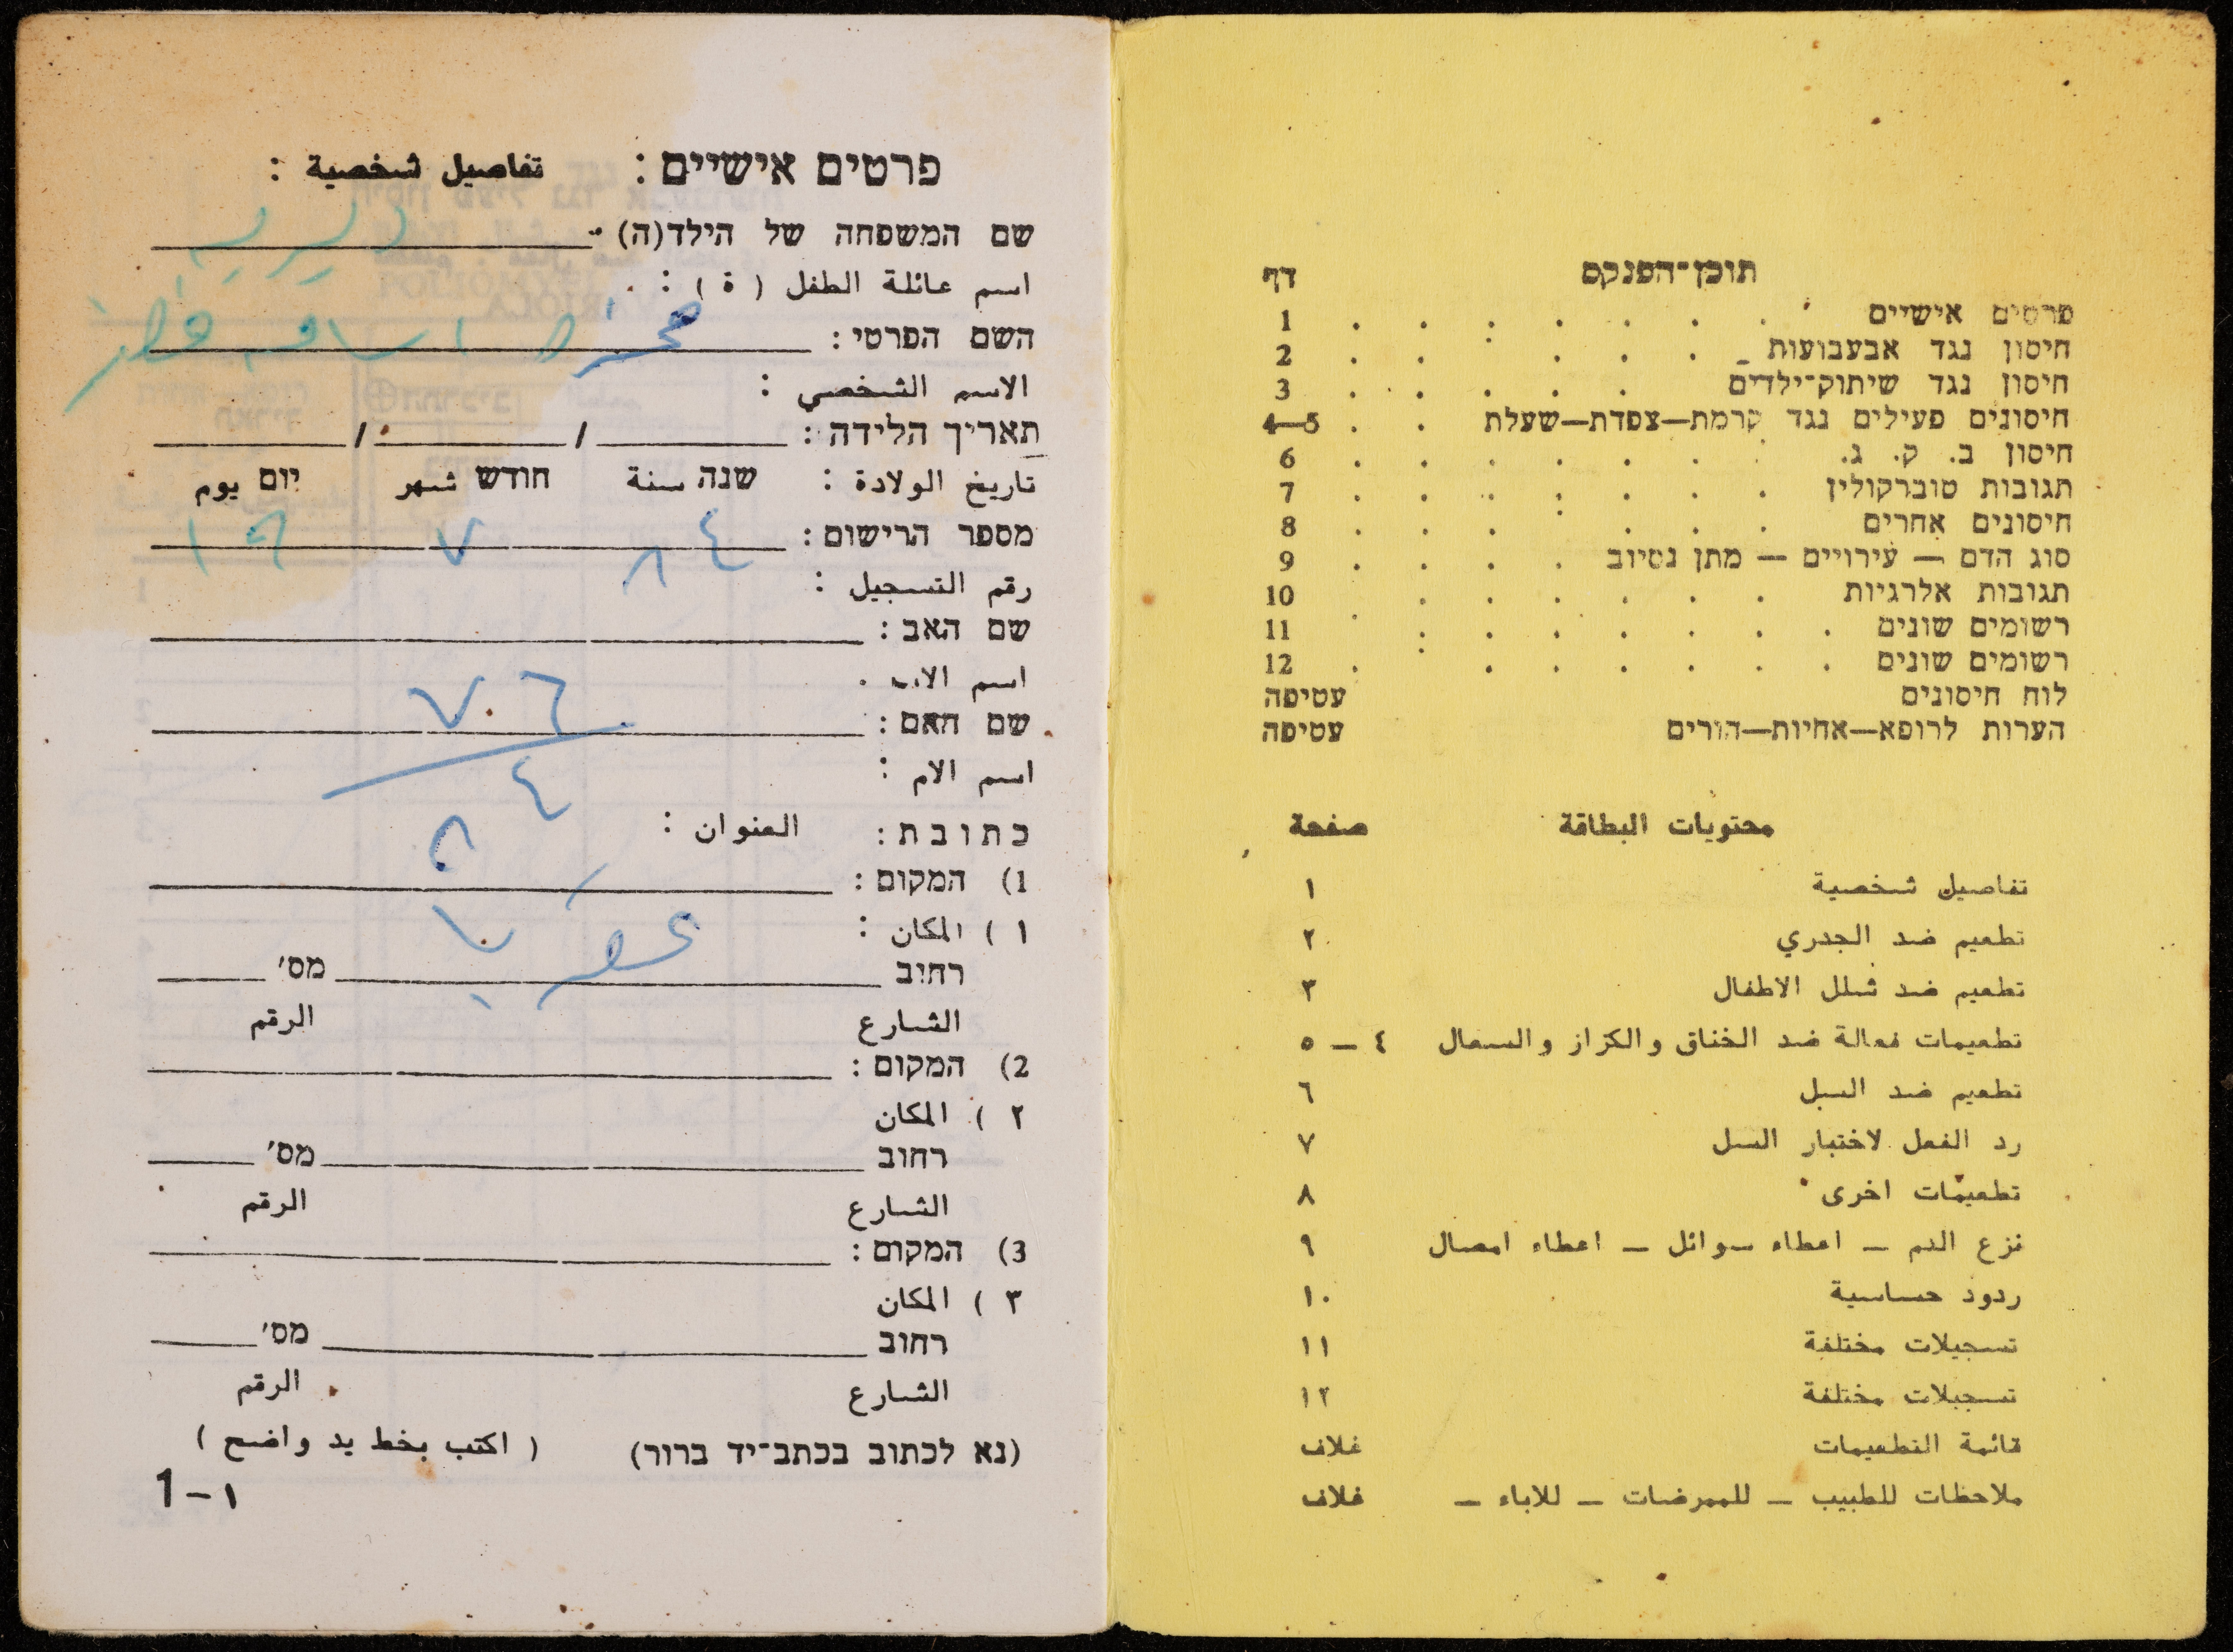 תוכן־הפנקס דף
פרטים אישיים . . . . . . . 1
חיסון נגד אבעבועות . . . . . 2
חיסון נגד שיתוק־ילדים . . . . . 3
חיסונים פעילים נגד קרמת—צפדת—שעלת . . 4—5
חיסון ב. ק. ג. . . . . . . 6
תגובות טוברקולין . . . . . . . 7
חיסונים אחרים . . . . . . 8
סוג הדם — עירויים — מתן נסיוב . . . . 9
תגובות אלרגיות . . . . . . 10
רשומים שונים . . . . . . . 11
רשומים שונים . . . . . . . 12
לוח חיסונים עטיפה
הערות לרופא—אחיות—הורים עטיפה
محتويات البطاقة صفحة
تفاصيل شخصية ١
تطعيم ضد الجدري ٢
تطعيم ضد شلل الاطفال ٣
تطعيمات فعالة ضد الخناق والكزاز والسعال ٤ ــ ٥
تطعيم ضد السل ٦
رد الفعل لاختبار السل ٧
تطعيمات اخرى ٨
نزع الدم ــ اعطاء سوائل ــ اعطاء امصال ٩
ردود حساسية ١٠
تسجيلات مختلفة ١١
تسجيلات مختلفة ١٢
قائمة التطعيمات غلاف
ملاحظات للطبيب ــ للممرضات ــ للاباء ــ غلاف
פרטים אישיים : تفاصيل شخصية :
שם המשפחה של הילד(ה)
اسم عائلة الطفل ( ة ) :
השם הפרטי :
الاسم الشخصي :
תאריך הלידה : / /
تاريخ الولادة : שנה سنة חודש شهر יום يوم
מספר הרישום : ٨٤ ٧ ١٩
رقم التسجيل :
שם האב :
اسم الاب
٧٦
שם האם :
اسم الام :
٤
כתובת : العنوان :
1) המקום :
١ ) المكان :
רחוב מס׳
الشارع الرقم
2) המקום :
٢ ) المكان
רחוב מס׳
الشارع الرقم
3) המקום :
٣ ) المكان
רחוב מס׳
الشارع الرقم
(נא לכתוב בכתב־יד ברור) ( اكتب بخط يد واضح )
1 – ١